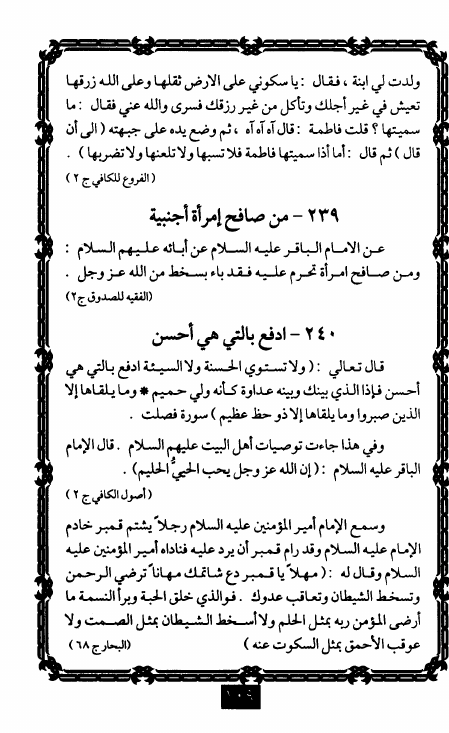 ولدت لي ابنة ، فقال : يا سكوني على الارض ثقلها وعلى الله رزقها
تعيش في غير أجلك وتأكل من غير رزقك فسرى والله عني فقال : ما
سميتها ؟ قلت فاطمة : قال آه آه آه ، ثم وضع يده على جبهته ( الى أن
قال ) ثم قال : أما أذا سميتها فاطمة فلا تسبها ولا تلعنها ولا تضربها ) .
( الفروع للكافي ج ٢ )
٢٣٩ – من صافح إمرأة أجنبية
عـن الامـام الـباقـر عليـه السـلام عن أبـائه علـيـهم السـلام :
ومـن صـافح امـرأة تحـرم علـيـه فـقـد باء بسـخـط من الله عـز وجل .
(الفقيه للصدوق ج٢)
٢٤٠ – ادفع بالتي هي أحسن
قـال تـعـالي : ( ولا تسـتـوي الحـسـنة ولا السـيـئـة ادفـع بـالـتي هي
أحسن فـإذا الـذي بينك وبينه عـداوة كـأنه ولي حـمـيم * ومـا يـلـقـاهـا إلا
الذين صبروا وما يلقاها إلا ذو حظ عظيم ) سورة فصلت .
وفي هذا جاءت توصيات أهل البيت عليهم السلام . قال الإمام
الباقر عليه السلام : ( إن الله عز وجل يحب الحييُّ الحليم ) .
( أصول الكافي ج ٢ )
وسـمـع الإمـام أمـيـر المؤمنين عليـه السـلام رجـلاً يشتم قـمبر خادم
الإمـام عليـه السـلام وقـد رام قـمبر أن يرد عليـه فـناداه أمـيـر المؤمنين عليـه
السـلام وقـال له : ( مـهـلاً يا قـمـبر دع شـاتمـك مـهـانـاً تـرضي الـرحـمـن
وتـسـخـط الشيطان وتعـاقب عدوك . فـوالذي خلق الحبة وبرأ النسمة ما
أرضى المؤمن ربه بمثل الحلم ولا أسـخـط الـشـيـطان بمـثل الصـمـت ولا
عوقب الأحمق بمثل السكوت عنه ) (البحار ج ٦٨ )